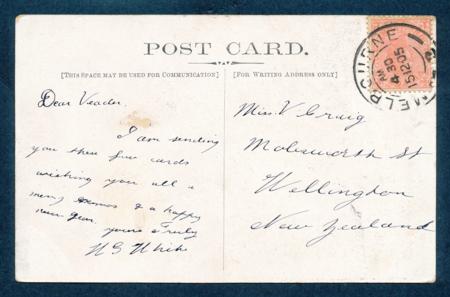 POST CARD.
[THIS SPACE MAY BE USED FOR COMMUNICATION]
[FOR WRITING ADDRESS ONLY]
Dear Veader.
I am sending
you these few cards
wishing you all a
merry & a happy
new year
yours Truly
W G White
Miss V Craig
Molesworth St
Wellington
New Zealand
MELBOURNE
4 30
AM
15 12 05